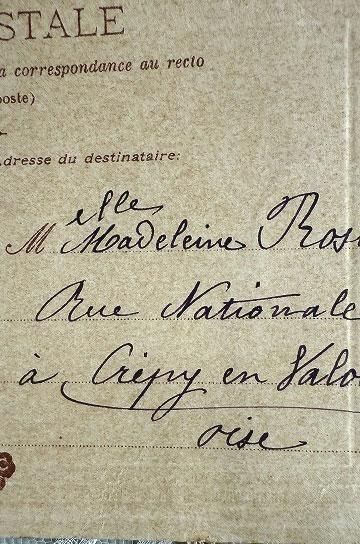 STALE
a correspondance au recto
poste)
Adresse du destinataire:
Melle Madeleine Ros
Rue Nationale
à Crépy en Valo
oise